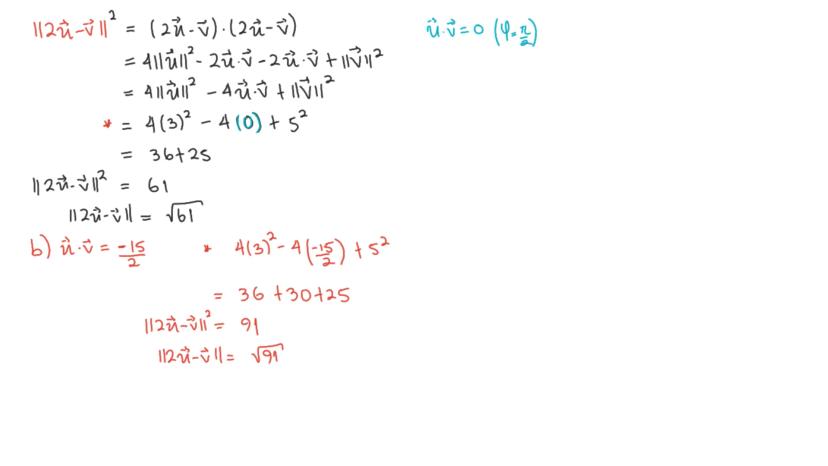 ||2u⃗-v⃗||² = (2u⃗-v⃗)·(2u⃗-v⃗)
u⃗·v⃗=0 (φ=π/2)
= 4||u⃗||² - 2u⃗·v⃗ - 2u⃗·v⃗ + ||v⃗||²
= 4||u⃗||² - 4u⃗·v⃗ + ||v⃗||²
* = 4(3)² - 4(0) + 5²
= 36+25
||2u⃗-v⃗||² = 61
||2u⃗-v⃗|| = √61
b) u⃗·v⃗ = -15/2 * 4(3)² - 4(-15/2) + 5²
= 36 +30+25
||2u⃗-v⃗||² = 91
||2u⃗-v⃗|| = √91